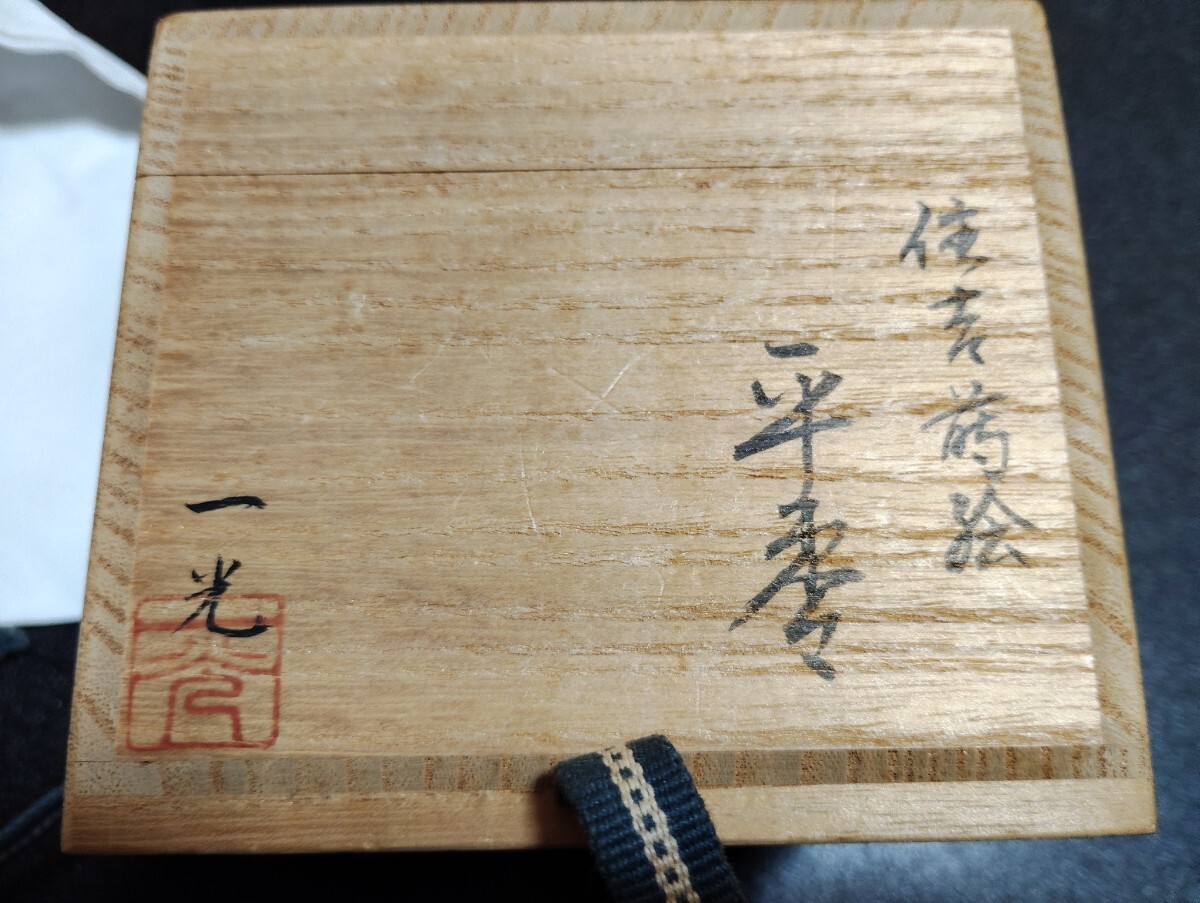 住吉蒔絵
平棗
一光